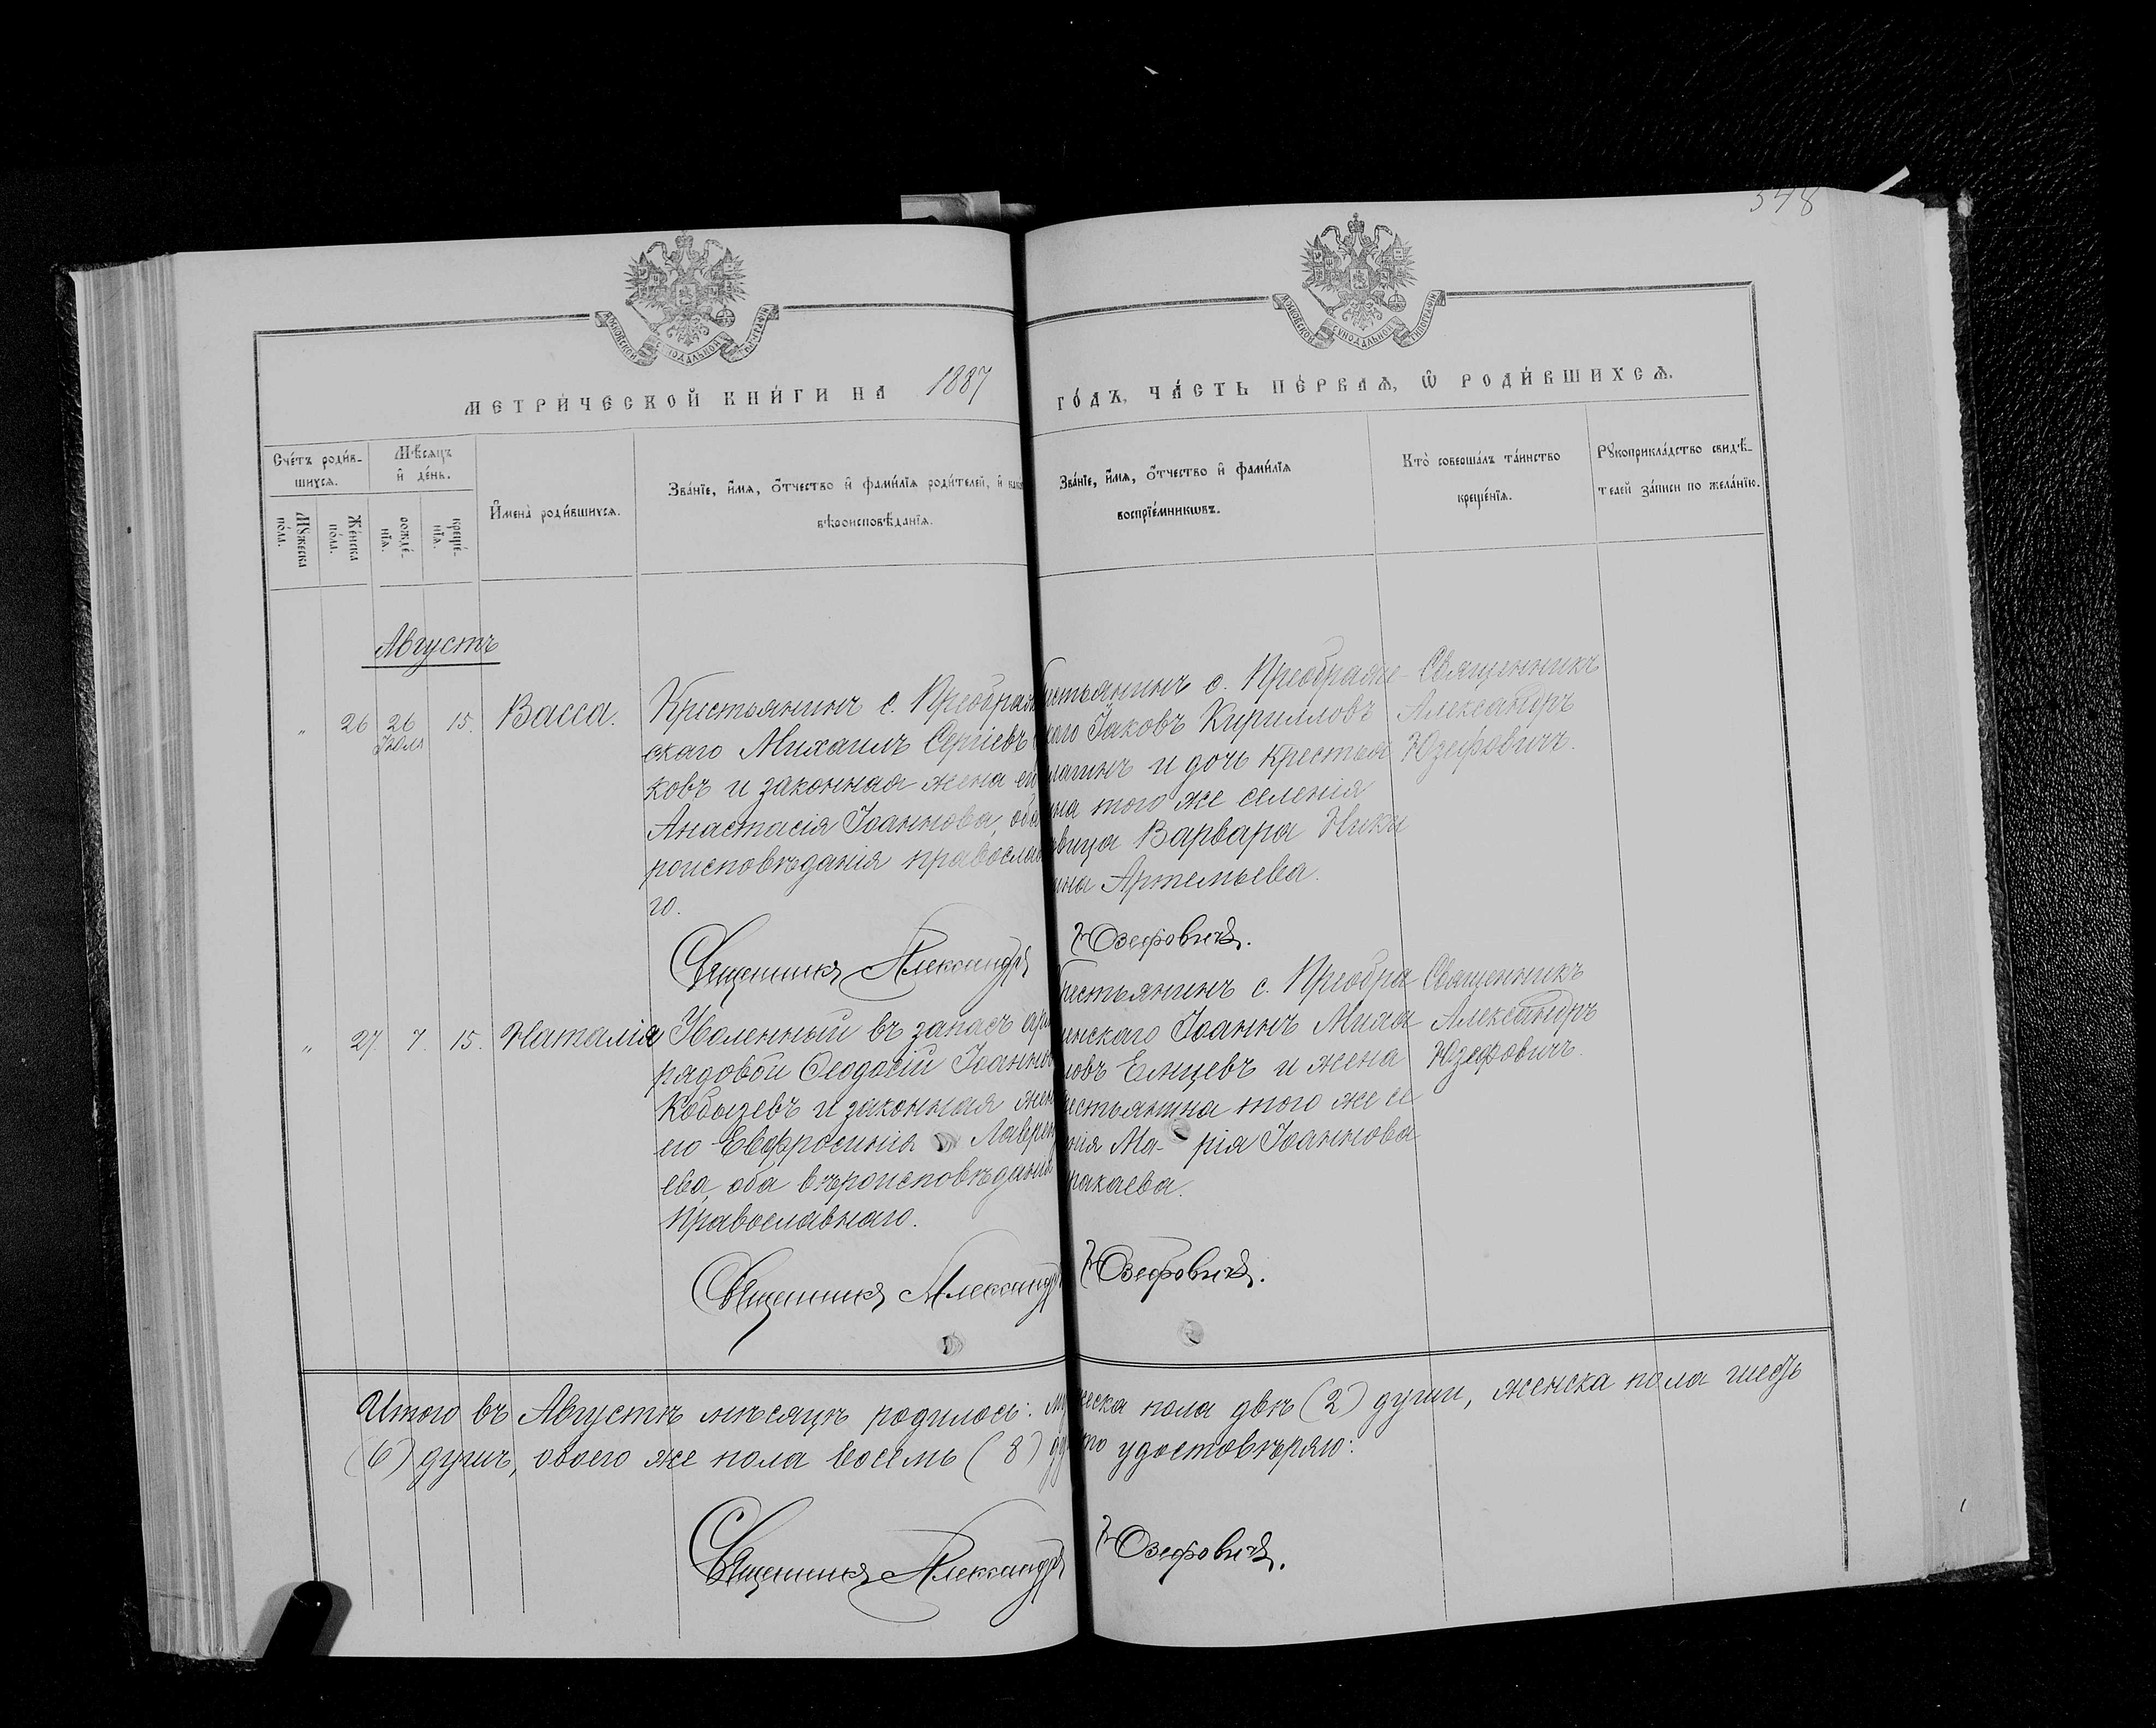 548
МОСКОВСКОЙ СѴНОДАЛЬНОЙ ТИПОГРАФІИ
МОСКОВСКОЙ СѴНОДАЛЬНОЙ ТИПОГРАФІИ
МЕТРИ́ЧЕСКОЙ КНИ́ГИ НА 1887
ГО́ДЪ, ЧА́СТЬ ПЕ́РВАѦ, Ѽ РОДИ́ВШИХСѦ.
Сче́тъ роди́в-
шихсѧ.
Мꙋ́жеска
по́ла.
Же́нска
по́ла.
Мѣ́сѧцъ
и҆ де́нь.
рожде́-
нїѧ.
креще́-
нїѧ.
И҆мена̀ роди́вшихсѧ.
Зва́нїе, и҆́мѧ, ѻ҆́тчество и҆ фами́лїѧ роди́телей, и҆
вѣроисповѣ́данїѧ.
Зва́нїе, и҆́мѧ, ѻ҆́тчество и҆ фами́лїѧ
воспрїе́мникѡвъ.
Кто̀ соверша́лъ та́инство
креще́нїѧ.
Рꙋкоприкла́дство свидѣ́-
телей за́писи по жела́нїю.
Августъ
" 26 26 Іюля 15. Васса.
Крестьянинъ с. Преображен
скаго Михаилъ Сергіевъ
ковъ и законная жена его
Анастасія Іоаннова, оба
роисповѣданія православ
го.
крестьянинъ с. Преображе-
скаго Іаковъ Кирилловъ
и дочь крестья
нина того же селенія
дѣвица Варвара Ники
Артемьева.
Священникъ
Александръ
Юзефовичъ.
Священникъ Александръ Юзефовичъ.
" 27. 7. 15. Наталія
Уволенный въ запасъ арм
рядовой Ѳеодосій Іоаннов
Кобызевъ и законная жен
его Евфросинія Лаврент
ева, оба вѣроисповѣданія
православнаго.
крестьянинъ с. Преобра
женскаго Іоаннъ Михаи
ловъ Елицевъ и жена
крестьянина того же се
ленія Ма- рія Іоаннова
Священникъ
Александръ
Юзефовичъ.
Священникъ Александръ Юзефовичъ.
Итого въ Августѣ мѣсяцѣ родилось: мужеска пола двѣ (2) души, женска пола шесть
(6) душъ, обоего же пола восемь (8) удостовѣряю:
Священникъ Александръ Юзефовичъ.